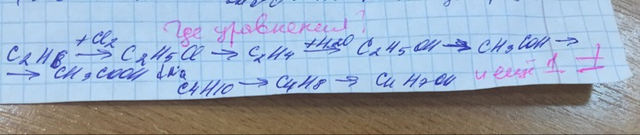 Где уравнения?
C2H6 +Cl2 → C2H5Cl → C2H4 +H2O → C2H5OH → CH3COH →
→ CH3COOH
C4H10 → C4H8 → C4H7OH и ещё 1